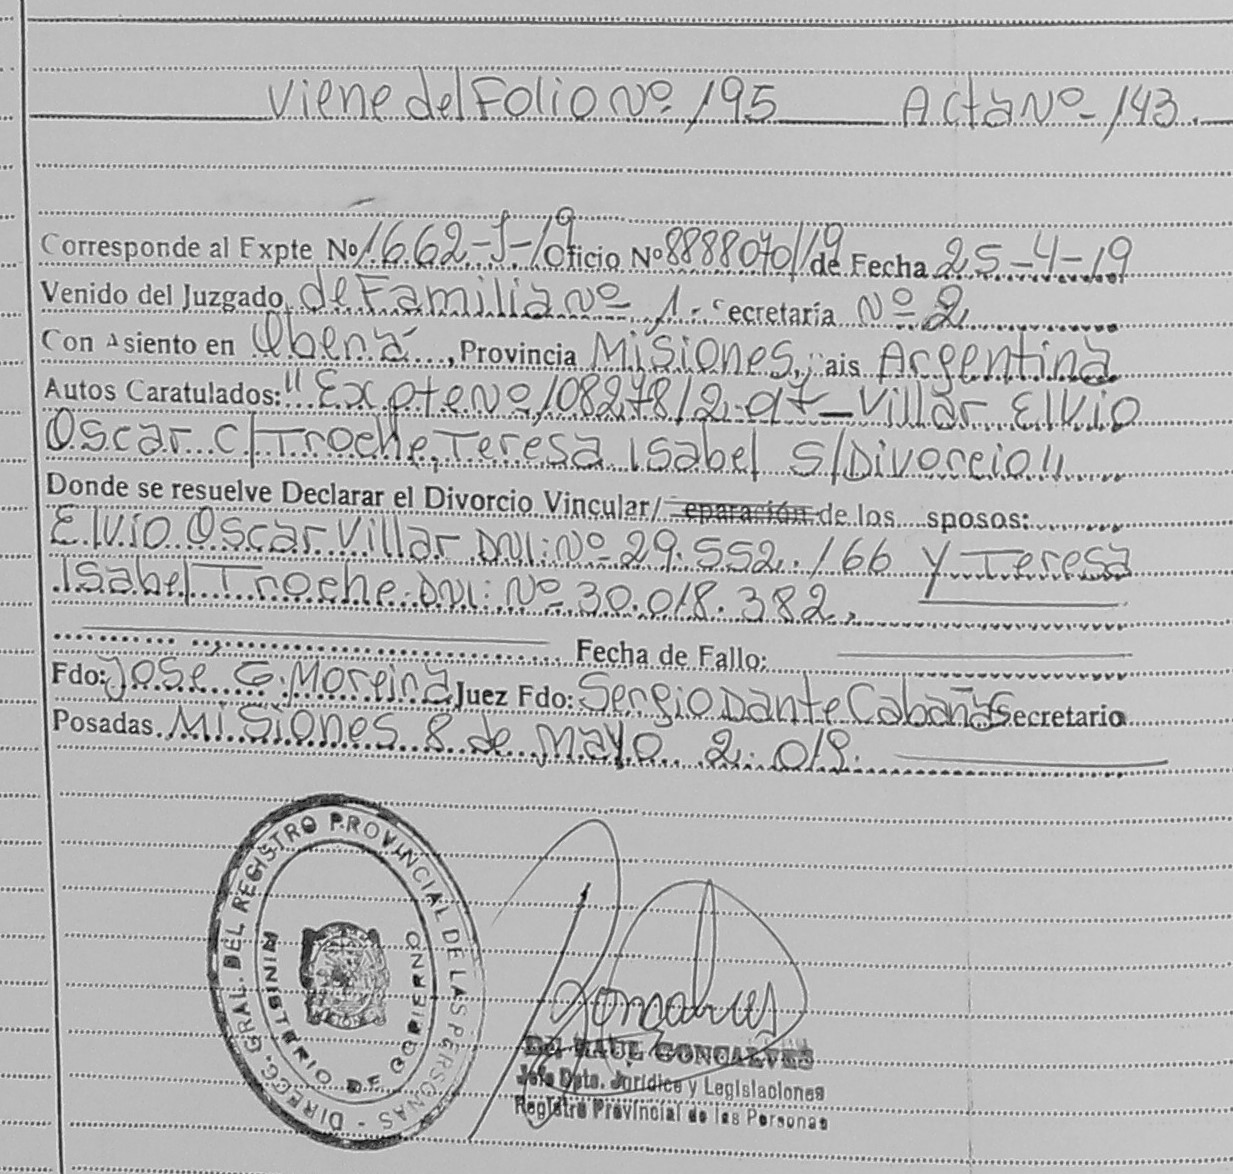 Viene del Folio Nº 195 Acta Nº 143.
Corresponde al Expte Nº 1662-J-19 Oficio Nº 8888070/19 de Fecha 25-4-19
Venido del Juzgado de Familia Nº 1- ecretaría Nº 2
Con Asiento en Oberá, Provincia Misiones, ais Argentina
Autos Caratulados: "Expte Nº 108278/2.017-Villar Elvio
Oscar C/ Troche, Teresa Isabel S/Divorcio"
Donde se resuelve Declarar el Divorcio Vincular/ eparación de los sposos:
Elvio Oscar Villar DNI: Nº 29.552.166 Y Teresa
Isabel Troche. DNI: Nº 30.018.382.
Fecha de Fallo:
Fdo: José G. Moreira Juez Fdo: Sergio Dante Cabañas Secretario
Posadas Misiones 8 de Mayo 2.019.
DIRECC. GRAL. DEL REGISTRO PROVINCIAL DE LAS PERSONAS -
MINISTERIO DE GOBIERNO
Goncalves
RAUL GONCALVES
Jefe Dpto. Jurídico y Legislaciones
Registro Provincial de las Personas